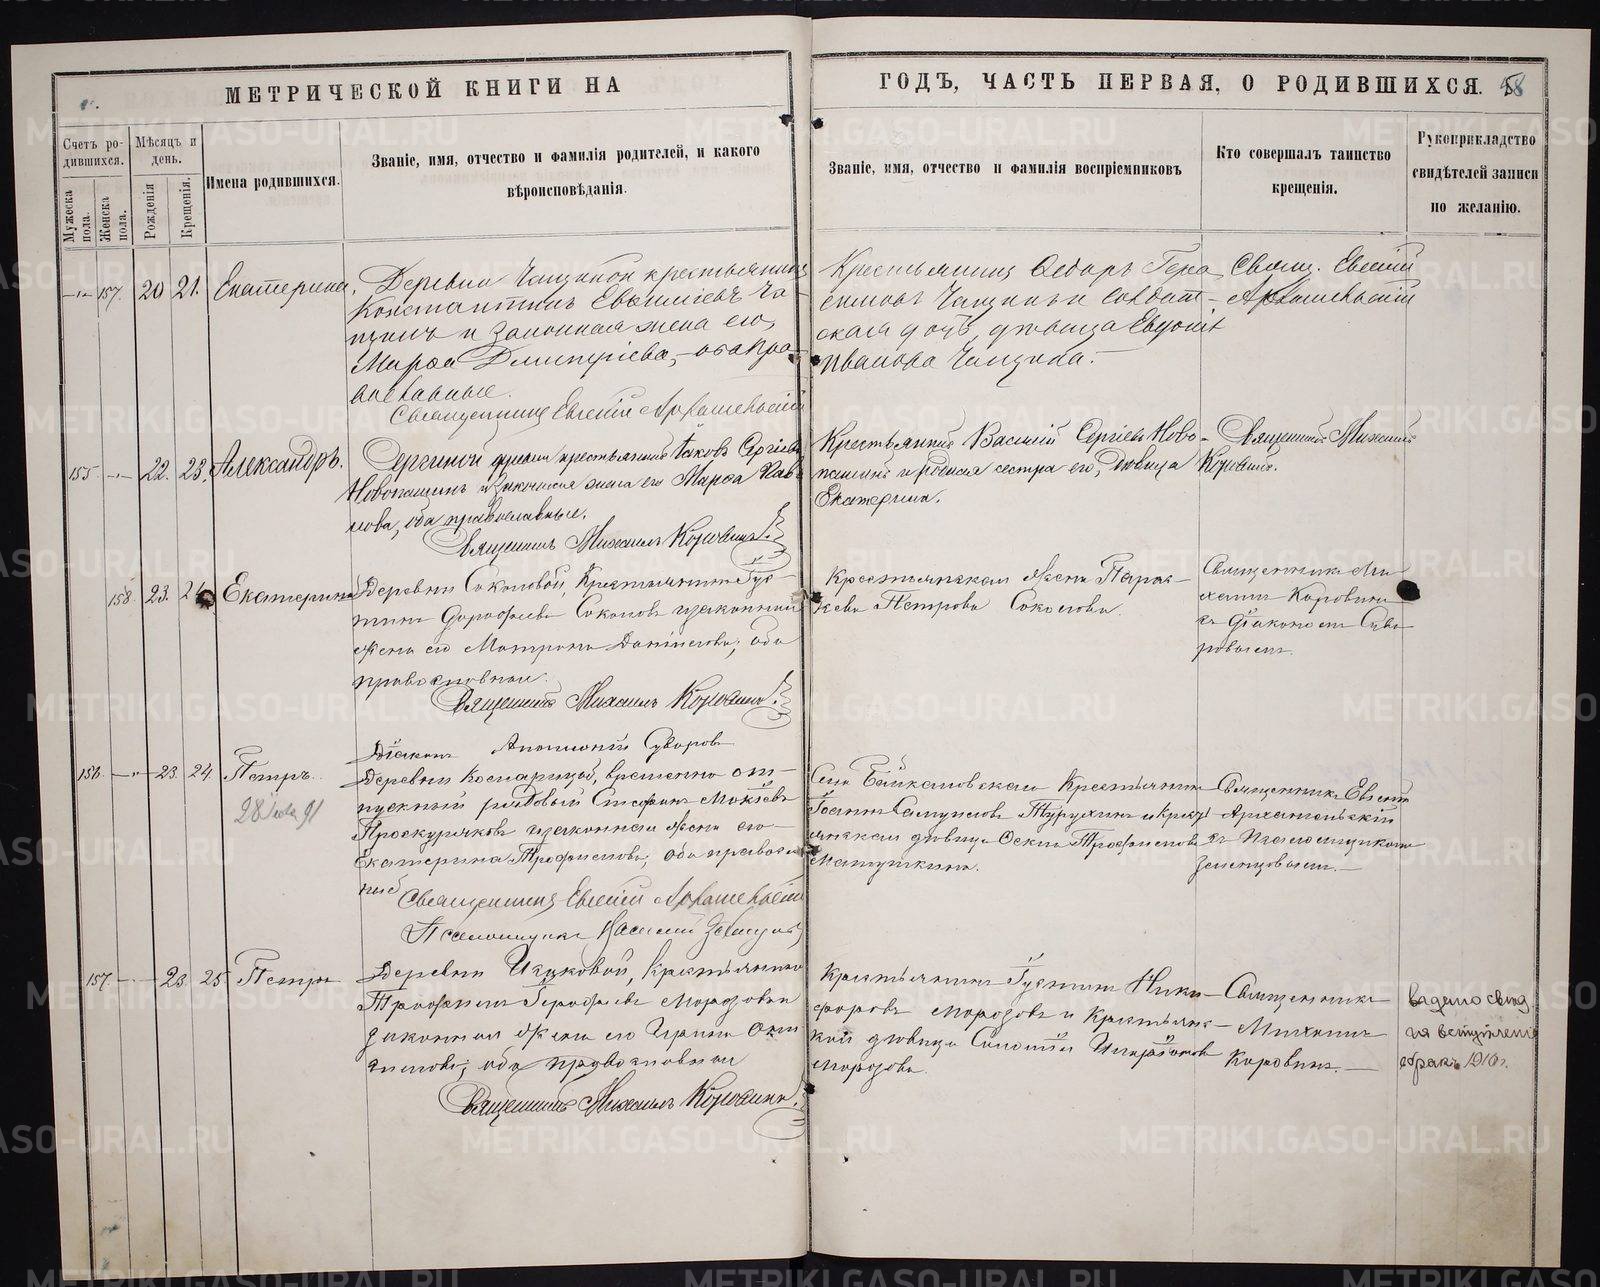 МЕТРИЧЕСКОЙ КНИГИ НА
ГОДЪ, ЧАСТЬ ПЕРВАЯ, О РОДИВШИХСЯ. 58
Счетъ ро-
дившихся.
Мѣсяцъ и
день.
Мужеска
пола.
Женска
пола.
Рожденія
Крещенія.
Имена родившихся.
Званіе, имя, отчество и фамилія родителей, и какого
вѣроисповѣданія.
Званіе, имя, отчество и фамилія воспріемниковъ
Кто совершалъ таинство
крещенія.
Рукоприкладство
свидѣтелей записи
по желанію.
157. 20 21. Екатерина.
Деревни Чащиной крестьянинъ
Константинъ Евѳиміевъ Ча-
щинъ и законная жена его,
Марѳа Димитріева, оба пра-
вославные.
Священникъ Евгеній Архангельскій
Крестьянинъ Ѳедоръ
Чащинъ и солдат-
ская дочь, дѣвица Евдокія
Иванова Чащина.
Свящ. Евгеній
Архангельскій
155 22. 23. Александръ.
крестьянинъ Іаковъ Сергіевъ
Новопашинъ и законная жена его Марѳа Пав-
лова, оба православные.
Священникъ Михаилъ Коровинъ.
Крестьянинъ Василій Сергіевъ Ново-
пашинъ и родная сестра его, дѣвица
Екатерина.
Священникъ Михаилъ
Коровинъ.
158. 23. 24 Екатерина
Деревни Соколовой, Крестьянинъ Іус-
тинъ Дорофеевъ Соколовъ и законная
жена его Матрона Даніилова, оба
православныи.
Священникъ Михаилъ Коровинъ.
Діаконъ Суворовъ
Крестьянская жена Парас-
кева Петрова Соколова.
Священникъ Ми-
хаилъ Коровинъ
съ Діакономъ Суво-
ровымъ.
156. 23. 24 Петръ.
91
Деревни временно от-
пускный рядовый Стефанъ Мокіевъ
Проскуряковъ и законная жена его
Екатерина Трофимова, оба правосла
ные
Священникъ Евгеній Архангельскій
Псаломщикъ Василій
Села Байкаловскаго Крестьянинъ
Іоаннъ Самуиловъ и Крест
янская дѣвица Трофимова
Матушкина.
Священникъ Евгеній
Архангельскій
съ Псаломщикомъ
157. 23. 25 Петръ
Деревни Ицковой, Крестьянинъ
Трофимъ Морозовъ и
законная жена его Ирина
оба православныи
Священникъ Михаилъ Коровинъ.
Крестьянинъ Іустинъ Ники-
форовъ Морозовъ и Крестьянс-
кая дѣвица
Морозова.
Священникъ
Михаилъ
Коровинъ.
выдано свид
на вступленіе
бракъ 1910 г.
METRIKI.GASO-URAL.RU